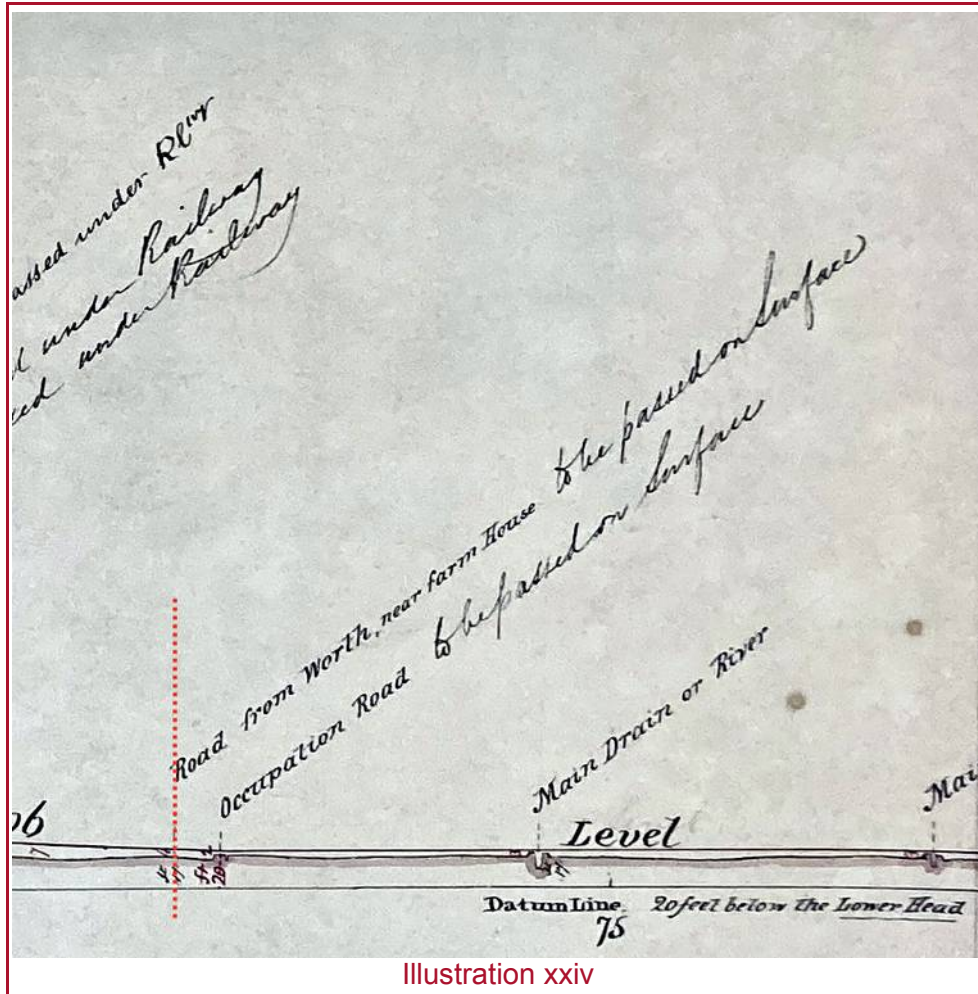 assed under Rlwy
under Railway
under Railway
Road from Worth, near farm House to be passed on Surface
Occupation Road to be passed on Surface
Main Drain or River
Mai
Level
Datum Line. 20 feet below the Lower Head
75
Illustration xxiv